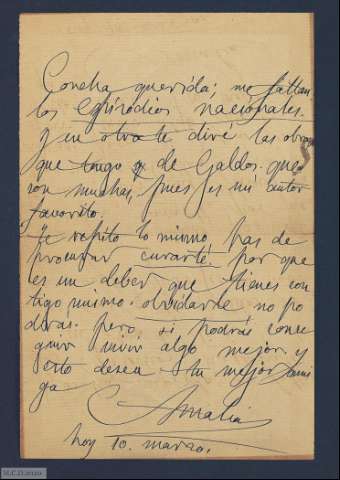 Concha querida; me faltan
los Episodios nacionales.
y en otra te diré las obras
que tengo y de Galdos. que
son muchas, pues es mi autor
favorito.
Te repito lo mismo has de
procurar curarte por que
es un deber que tienes con
tigo mismo. olvidarle no po
drás. pero si podrás conse
guir vivir algo mejor. y
esto desea tu mejor ami
ga
Amalia
hoy 10. marzo.